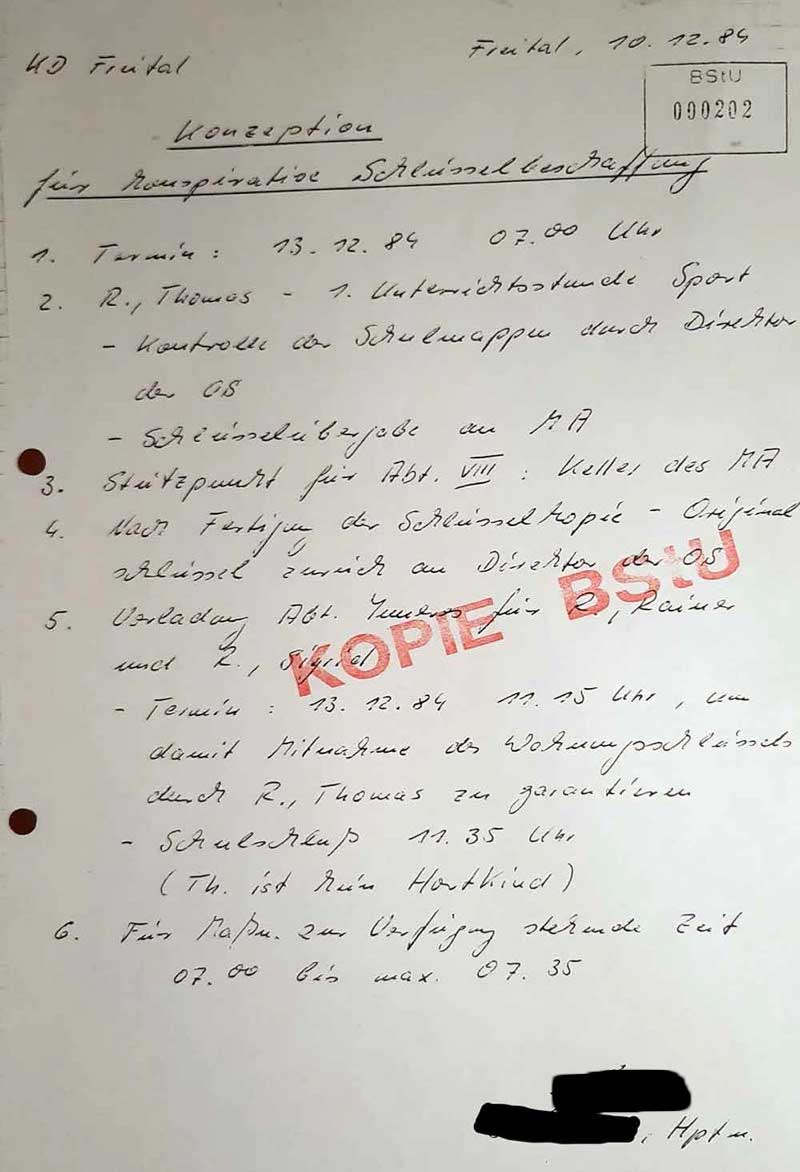 KD Freital
Freital, 10.12.84
BStU
000202
Konzeption
für konspirative Schlüsselbeschaffung
1. Termin: 13.12.84 07.00 Uhr
2. R., Thomas - 1. Unterrichtsstunde Sport
- Kontrolle der Schulmappen durch Direktor
der OS
- Schlüsselübergabe an MA
3. Stützpunkt für Abt. VIII: Keller des MA
4. Nach Fertigung der Schlüsselkopie - Original
schlüssel zurück an Direktor der OS
5. Vorladung Abt. Inneres für R., Rainer
und R., Sigrid
- Termin: 13.12.84 11.15 Uhr, um
damit Mitnahme des Wohnungsschlüssels
durch R., Thomas zu garantieren
- Schulschluß 11.35 Uhr
(Th. ist kein Hortkind)
6. Für Maßn. zur Verfügung stehende Zeit
07.00 bis max. 07.35
KOPIE BStU
, Hptm.